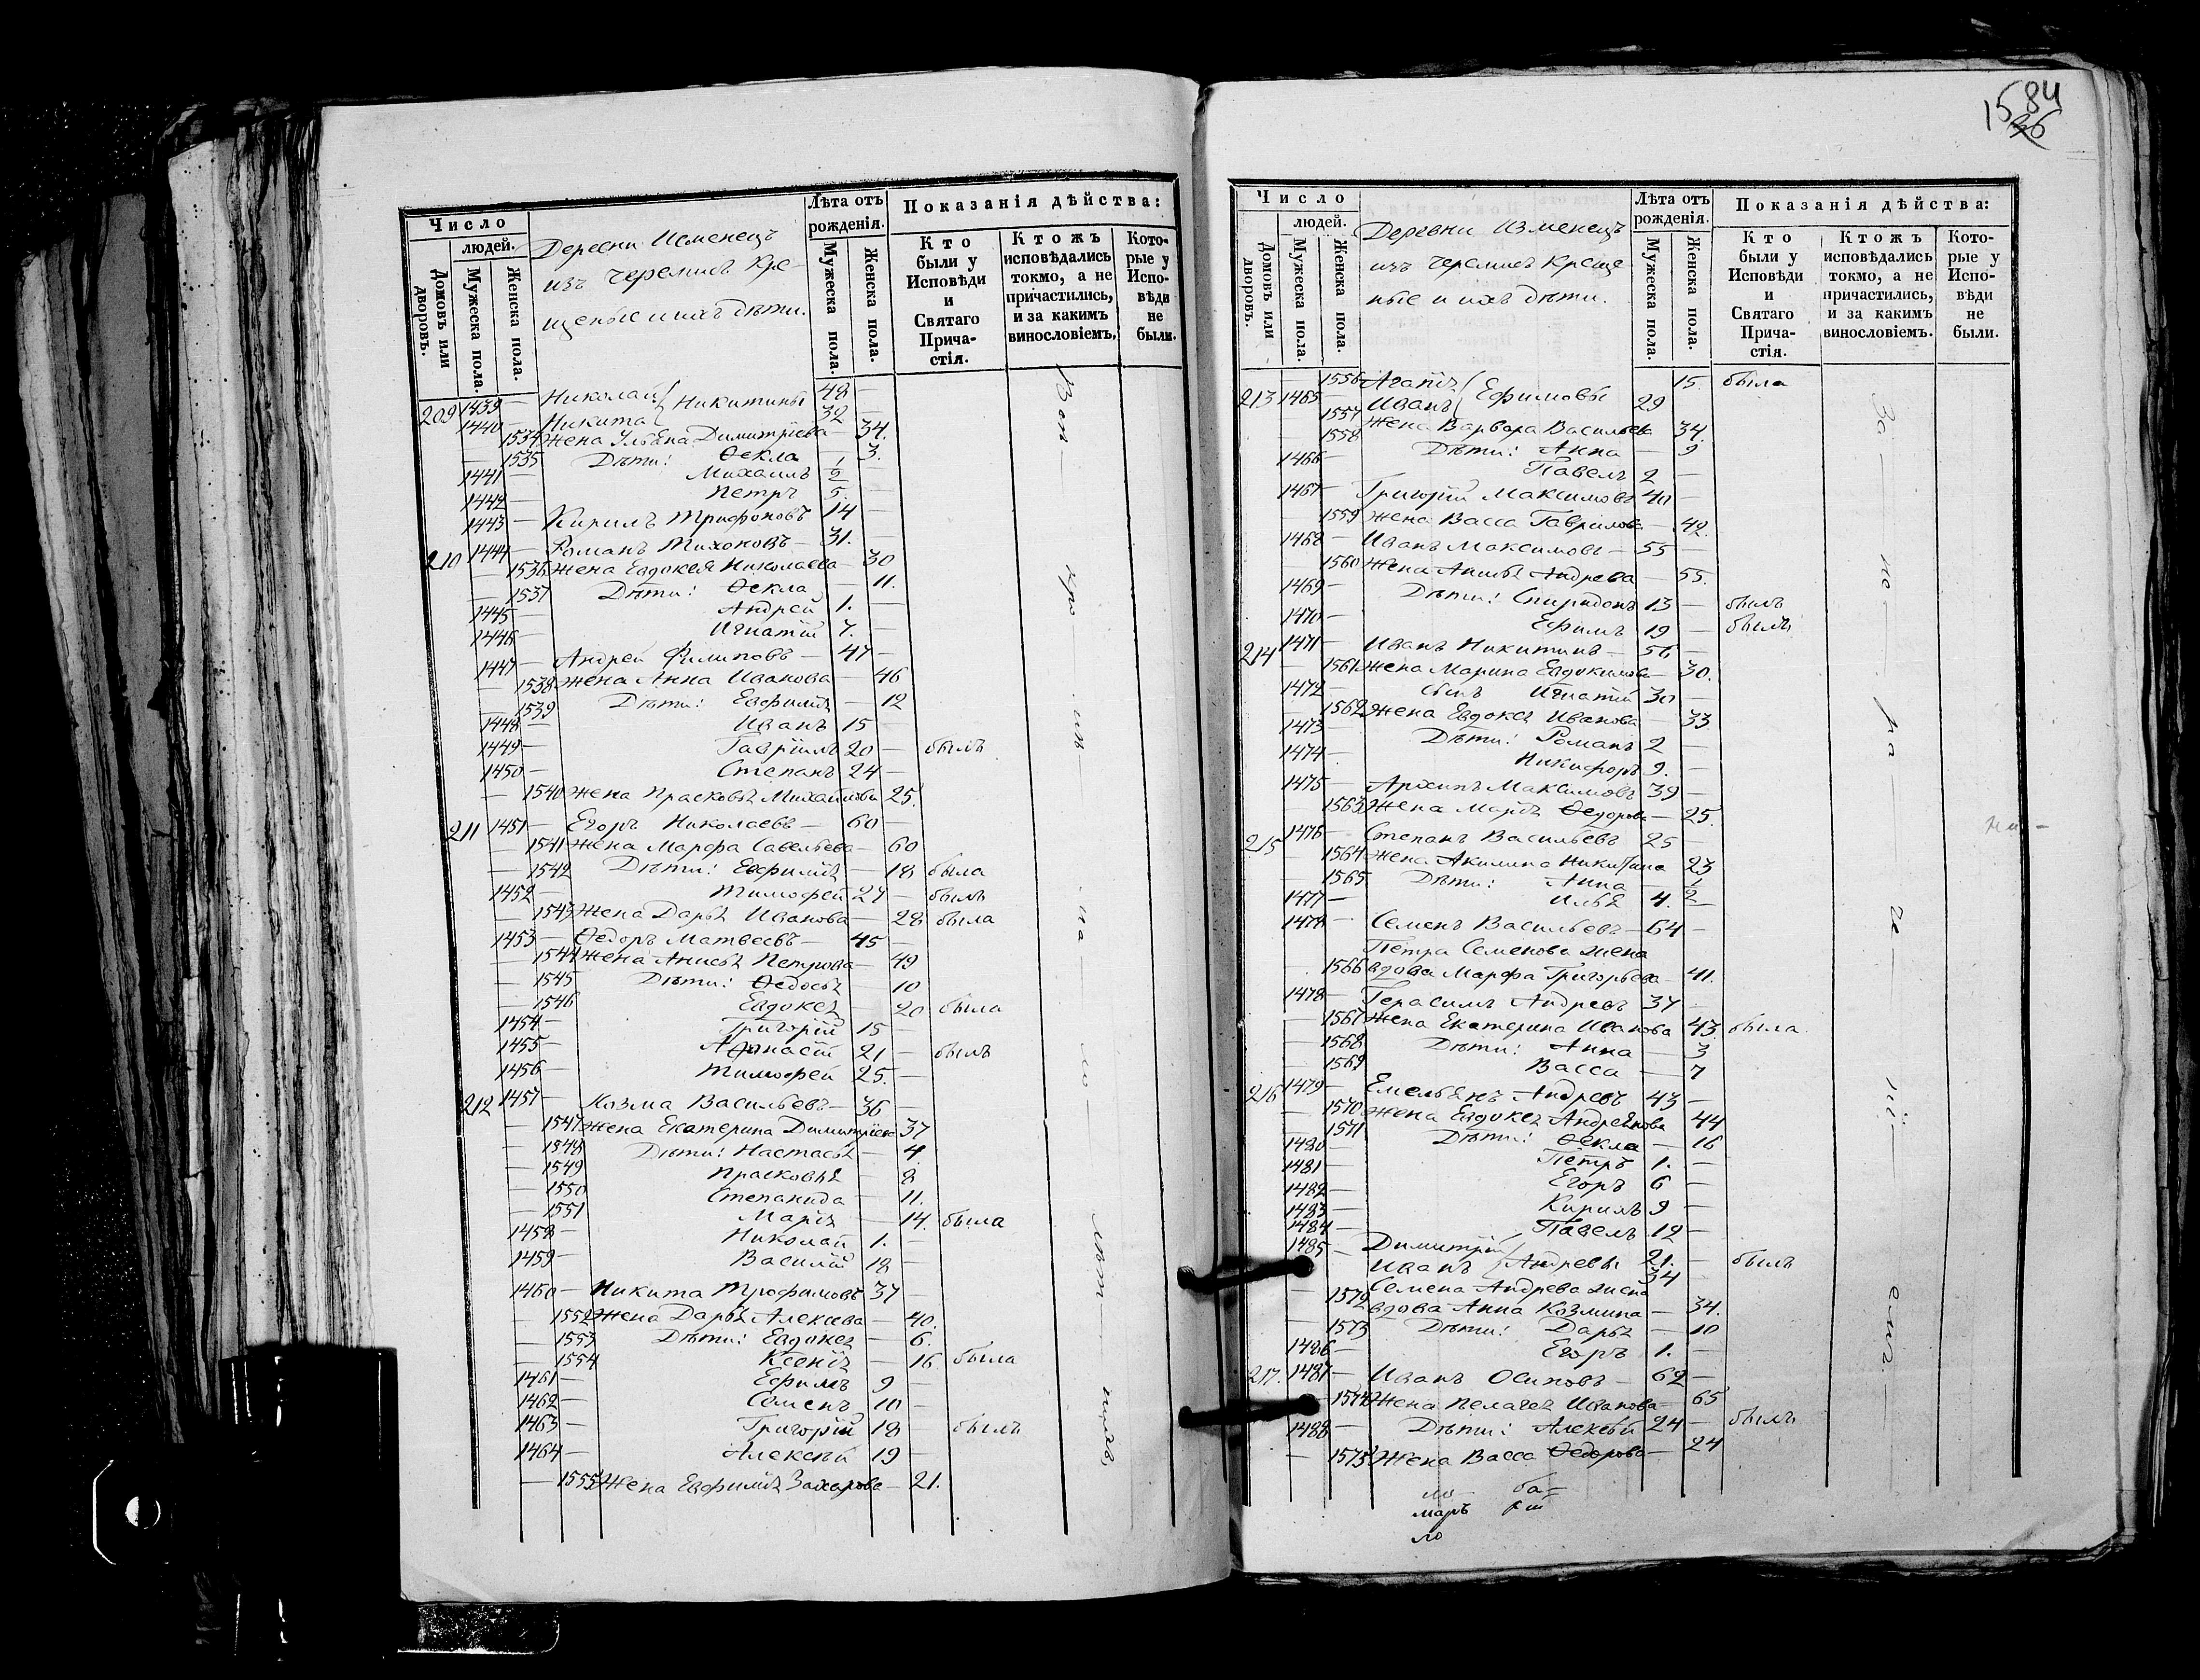 Число
людей.
Домовъ или дворовъ.
Мужеска пола.
Женска пола.
Деревни Исменецъ
изъ черемисъ Кре-
щеные и ихъ дѣти.
Лѣта отъ рожденія.
Мужеска пола.
Женска пола.
Показанія дѣйства:
Кто были у Исповѣди и Святаго Прича-стія.
Ктожъ исповѣдались токмо, а не причастились, и за какимъ винословіемъ,
Кото-рые у Испо-вѣди не были.
209 1439 — Николай 48 —
1440 — Никита } Никитины 32 —
— 1534 Жена Ульяна Димитріева — 34.
— 1535 Дѣти: Ѳекла — 3.
1441 — Михаилъ 1/2
1442 — Петръ 5. —
1443 — Кирилъ Трифоновъ 14 —
210 1444 — Романъ Тихоновъ — 31. —
— 1536 Жена Евдокея Николаева — 30
— 1537 Дѣти: Ѳекла — 11.
1445 — Андрей 1. —
1446 — Игнатій 7. —
1447 — Андрей Филиповъ — 47 —
— 1538 Жена Анна Иванова — 46
— 1539 Дѣти: Евфимія — 12
1448 — Иванъ 15 —
1449 — Гавріилъ 20 — былъ
1450 — Степанъ 24 —
— 1540 Жена Прасковья Михайлова 25.
211 1451 — Егоръ Николаевъ — 60 —
— 1541 Жена Марфа Савельева — 60
— 1542 Дѣти: Евфимія — 18 была
1452 — Тимофей 27 — былъ
— 1543 Жена Дарья Иванова — 28 была
1453 — Ѳедоръ Матвеевъ — 45 —
— 1544 Жена Анисья Петрова — 49
— 1545 Дѣти: Ѳедосья — 10
— 1546 Евдокея — 20 была
1454 — Григорій 15 —
1455 — Афонасій 21 — былъ
1456 — Тимофей 25. —
212 1457 — Козма Васильевъ — 36 —
— 1547 Жена Екатерина Димитріева 37
— 1548 Дѣти: Настасья — 4
— 1549 Прасковья — 8
— 1550 Степанида — 11.
— 1551 Марія — 14. была
1458 — Николай 1. —
1459 — Василій 18 —
1460 — Никита Трофимовъ 37 —
— 1552 Жена Дарья Алексева — 40.
— 1553 Дѣти: Евдокея — 6.
— 1554 Ксенія — 16 была
1461 — Ефимъ 9 —
1462 — Семенъ 10 —
1463 — Григорій 18 — былъ
1464 — Алексѣй 19 —
— 1555 Жена Евфимія Захарова — 21.
1584
36
Число
людей.
Домовъ или дворовъ.
Мужеска пола.
Женска пола.
Деревни Изменецъ
изъ черемисъ Креще
ные и ихъ дѣти.
Лѣта отъ рожденія.
Мужеска пола.
Женска пола.
Показанія дѣйства:
Кто были у Исповѣди и Святаго Прича-стія.
Ктожъ исповѣдались токмо, а не причастились, и за какимъ винословіемъ.
Кото-рые у Испо-вѣди не были.
— 1556 Агапія 15. была
213 1465 — Иванъ } Ефимовы 29
— 1557 Жена Варвара Васильева 34.
— 1558 Дѣти: Анна — 9
1466 — Павелъ 2 —
1467 — Григорій Максимовъ 40 —
— 1559 Жена Васса Гаврилова — 42.
1468 — Иванъ Максимовъ — 55 —
— 1560 Жена Анисья Андрева — 55.
1469 — Дѣти: Спиридонъ 13 — былъ
1470 — Ефимъ 19 — былъ
214 1471 — Иванъ Никитинъ — 56 —
— 1561 Жена Марина Евдокимова — 30.
1472 — сынъ Игнатій 30 —
— 1562 Жена Евдокея Иванова — 33
1473 — Дѣти: Романъ 2 —
1474 — Никифоръ 9. —
1475 — Архипъ Максимовъ 39 —
— 1563 Жена Марія Ѳедорова — 25.
215 1476 — Степанъ Васильевъ 25 —
— 1564 Жена Акилина Никитина 23
— 1565 Дѣти: Анна — 1/2
1477 — Илья 4. —
1478 — Семенъ Васильевъ — 64 —
Петра Семенова жена
— 1566 вдова Марфа Григорьева — 41.
1478 — Герасимъ Андревъ 37 —
— 1567 Жена Екатерина Иванова 43. была
— 1568 Дѣти: Анна — 3
— 1569 Васса — 7
216 1479 — Емельянъ Андревъ 43 —
— 1570 Жена Евдокея Андреянова 44
— 1571 Дѣти: Ѳекла — 16
1480 — Петръ 1. —
1481 — Егоръ 6 —
1482 — Кирилъ 9 —
1483 — Павелъ 12 —
1484 — Димитрій 21. — былъ
1485 — Иванъ } Андревы 34
Семена Андрева жена
— 1572 вдова Анна Козмина — 34.
— 1573 Дѣти: Дарья — 10
1486 — Егоръ 1. —
217. 1487 — Иванъ Осиповъ — 62 —
— 1574 Жена Пелагея Иванова — 65
1488 — Дѣти: Алексѣй 24 — былъ
— 1575 Жена Васса Ѳедорова — 24